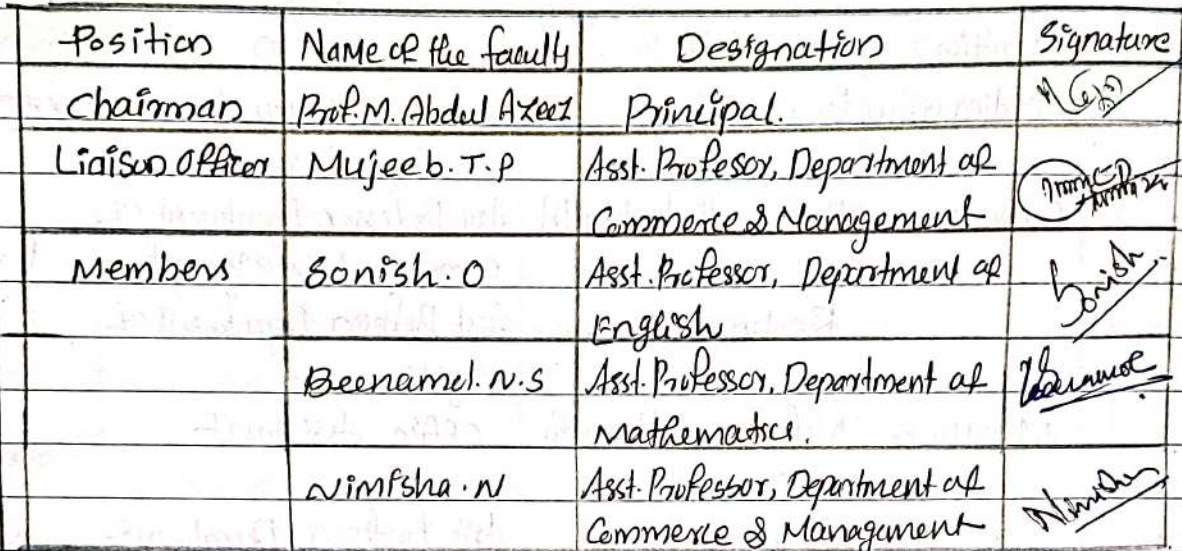 Position Name of the faculty Designation Signature
Chairman Prof. M. Abdul Azeez Principal.
Liaison Officer Mujeeb. T. P Asst. Profesor, Department of
Commerce & Management
Members Sonish. O Asst. Professor, Department of Sonish
English
Beenamol. N. S Asst. Professor, Department of
Mathematics.
Nimisha. N Asst. Professor, Department of
Commerce & Management